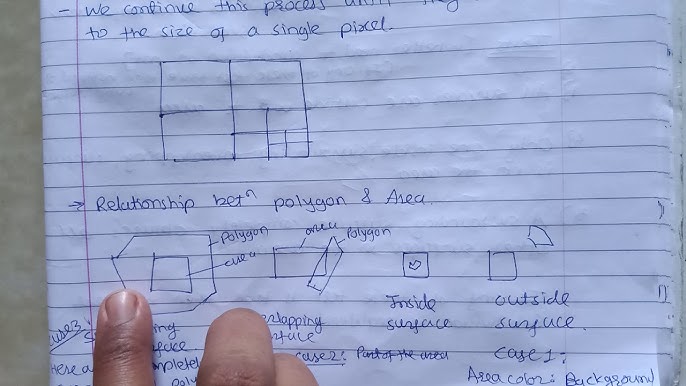 - We continue this process
to the size of a single pixel.
→ Relationship betⁿ polygon & Area.
Polygon
area
area
Polygon
Inside
surface
outside
surface.
Case3:
overlapping
case2: Part of the area
Case 1:
Area color: Background